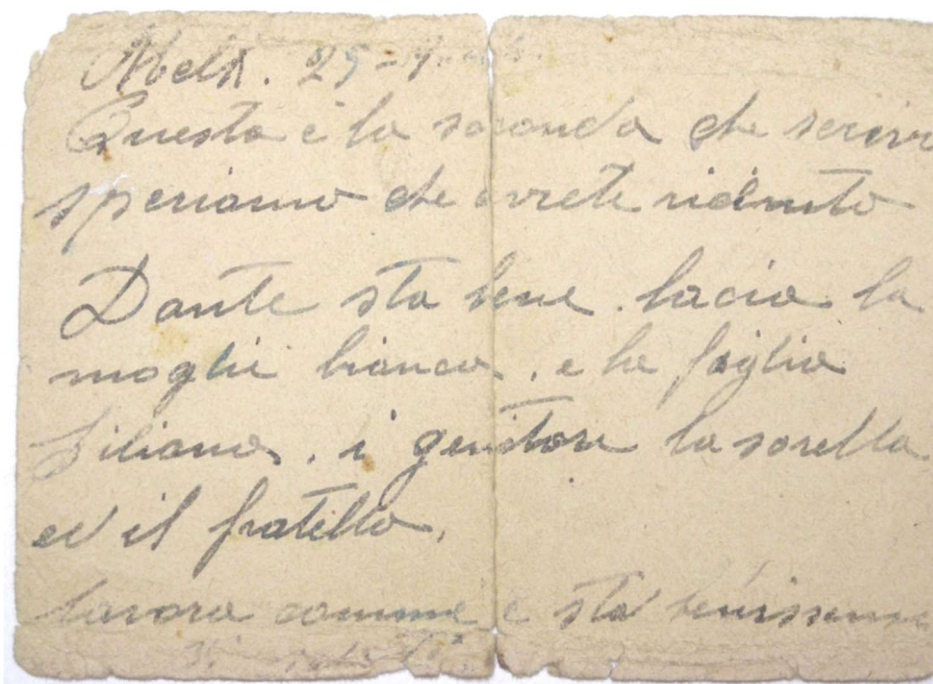 25 =
Questa è la seconda che scrivo
speriamo che avrete ricevuto
Dante sta bene. bacia la
moglie bianca, e la figlia
Liliana, i genitori la sorella
ed il fratello.
lavora comme e sta benissimo